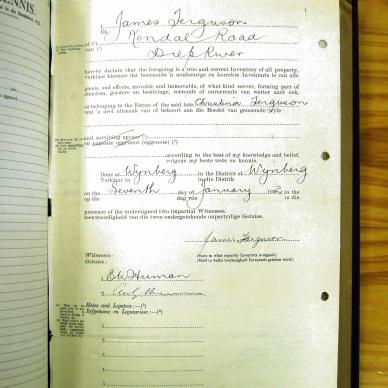 ENNIS.
I, James Ferguson
of (²) Kendal Road
Diep River
hereby declare that the foregoing is a true and correct Inventory of all property,
verklaar hiermee dat bostaande 'n noukeurige en korrekte Inventaris is van alle
goods, and effects, movable and immovable, of what kind soever, forming part of
goedere en besittings, roerende of onroerende van watter aard ook,
or belonging to the Estate of the said late Christina Ferguson
wat 'n deel uitmaak van of behoort aan die Boedel van genoemde
and surviving spouse
en (³)
according to the best of my knowledge and belief.
volgens my beste wete en kennis.
Done at Wynberg in the District of Wynberg
Verklaar te in die Distrik
on the Seventh day of January 19
op die dag van in die
presence of the undersigned two impartial Witnesses.
teenwoordigheid van die twee ondergetekende onpartydige Getuies.
James Ferguson
(State in what capacity Inventory is signed.)
(Meld in welke hoedanigheid Inventaris geteken word.)
Witnesses:
Getuies:
1.
2.
Heirs and Legatees:—(⁴)
Erfgename en Legatarisse:—(⁴)
1
2
3
4
5